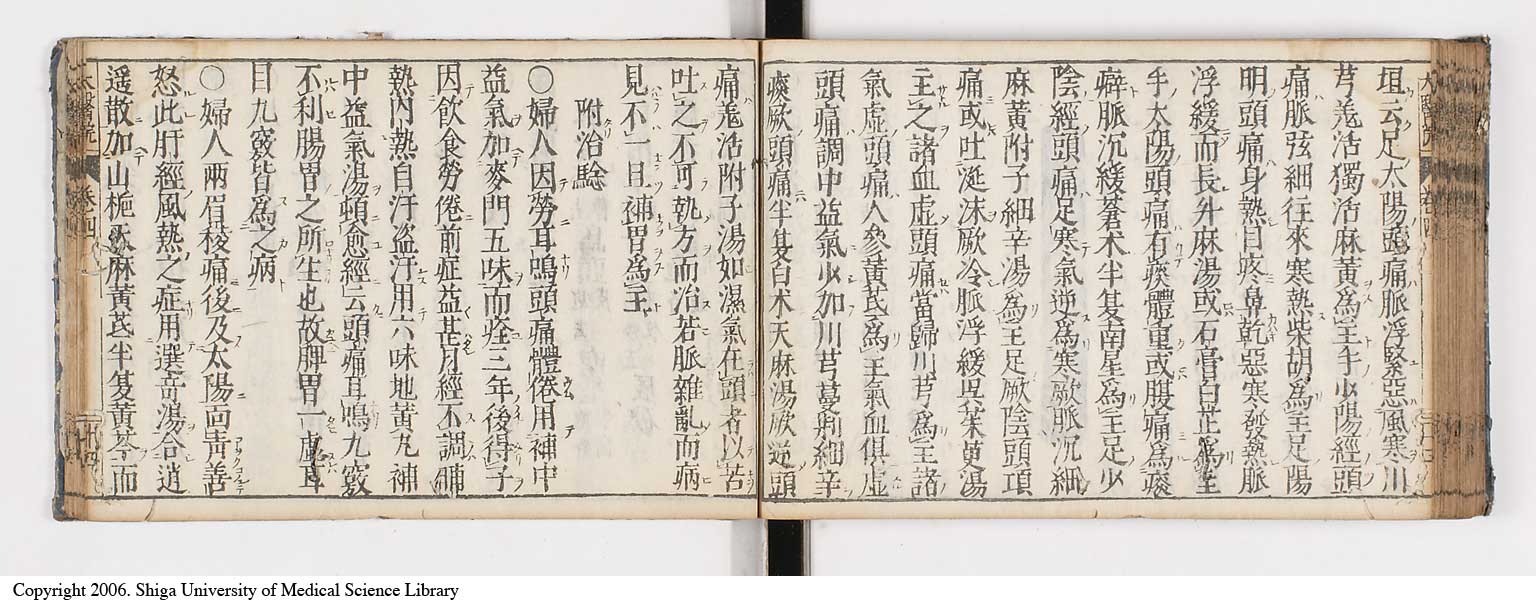 垣云足太陽頭痛脈浮緊惡風寒川
芎羌活獨活麻黃為主手少陽經頭
痛脈弦細往來寒熱柴胡為主足陽
明頭痛身熱目疼鼻乾惡寒發熱脈
浮緩而長升麻湯或石膏白芷為主
手太陽頭痛有痰體重或腹痛為痰
癖脈沉緩蒼朮半夏南星為主足少
陰經頭痛足寒氣逆為寒厥脈沉細
麻黃附子細辛湯為主足厥陰頭項
痛或吐涎沫厥冷脈浮緩吳茱萸湯
主之諸血虛頭痛當歸川芎為主諸
氣虛頭痛人參黃芪為主氣血俱虛
頭痛調中益氣少加川芎蔓荊細辛
痰厥頭痛半夏白朮天麻湯厥逆頭
痛羌活附子湯如濕氣在頭者以苦
吐之不可執方而治若脈雜亂而病
見不一且補胃為主
附治驗
○婦人因勞耳鳴頭痛體倦用補中
益氣加麥門五味而痊三年後得子
因飲食勞倦前症益甚月經不調晡
熱內熱自汗盜汗用六味地黃丸補
中益氣湯頓愈經云頭痛耳鳴九竅
不利腸胃之所生也故脾胃一虛耳
目九竅皆為之病
○婦人兩眉稜痛後及太陽面青善
怒此肝經風熱之症用選奇湯合逍
遥散加山梔天麻黃芪半夏黃芩而
卷四
Copyright 2006. Shiga University of Medical Science Library